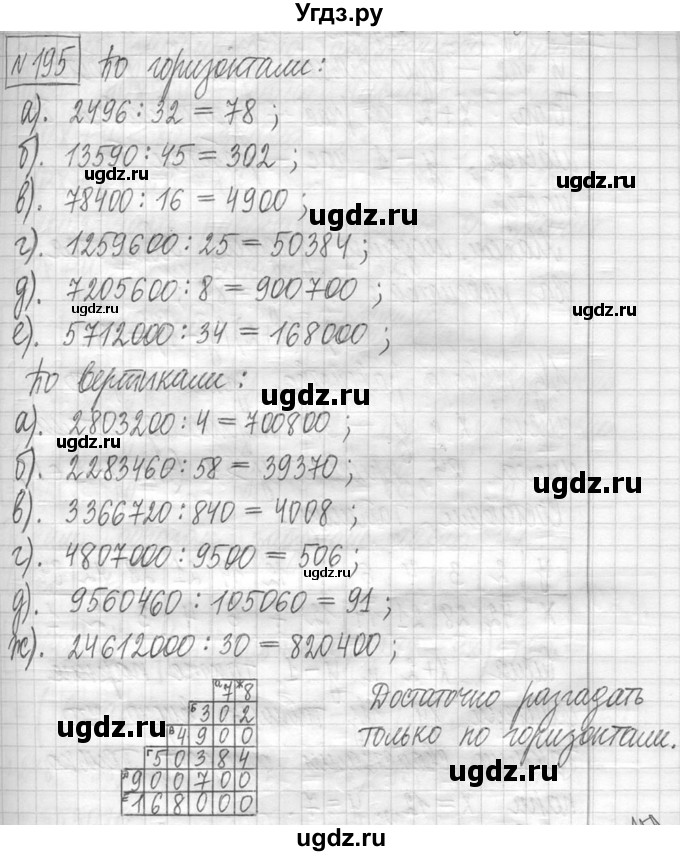 Угдз.ру
№195 По горизонтали:
а). 2496 : 32 = 78 ;
б). 13590 : 45 = 302 ;
ugdz.ru
в). 78400 : 16 = 4900 ;
ugdz.ru
г). 1259600 : 25 = 50384 ;
д). 7205600 : 8 = 900700 ;
ugdz.ru
ugdz.ru
е). 5712000 : 34 = 168000 ;
По вертикали :
ugdz.ru
а). 2803200 : 4 = 700800 ;
ugdz.ru
б). 2283460 : 58 = 39370 ;
ugdz.ru
в). 3366720 : 840 = 4008 ;
г). 4807000 : 9500 = 506 ;
ugdz.ru
д). 9560460 : 105060 = 91 ;
ж). 24612000 : 30 = 820400 ;
а 7 ж 8
б 3 0 2
в 4 9 0 0
г 5 0 3 8 4
д 9 0 0 7 0 0
е 1 6 8 0 0 0
Достаточно разгадать
только по горизонтали.
ugdz.ru
ugdz.ru
ugdz.ru
ugdz.ru
ugdz.ru